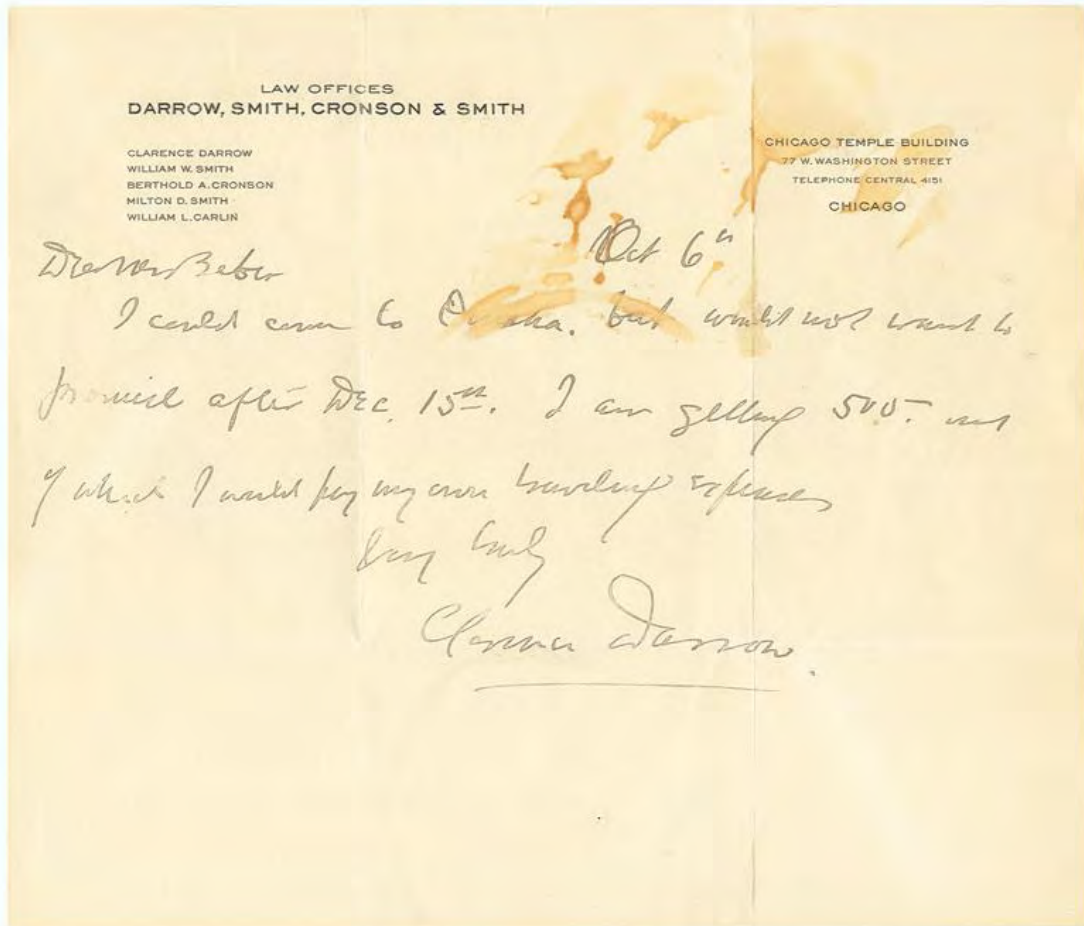 LAW OFFICES
DARROW, SMITH, CRONSON & SMITH
CLARENCE DARROW
WILLIAM W. SMITH
BERTHOLD A. CRONSON
MILTON D. SMITH
WILLIAM L. CARLIN
CHICAGO TEMPLE BUILDING
77 W. WASHINGTON STREET
TELEPHONE CENTRAL 4151
CHICAGO
Oct 6th
Dear Mr Beber
I could come to Omaha. but would not want to
promise after Dec. 15th. I am getting 500.- out
of which I would pay my own traveling expenses
Very truly
Clarence Darrow.